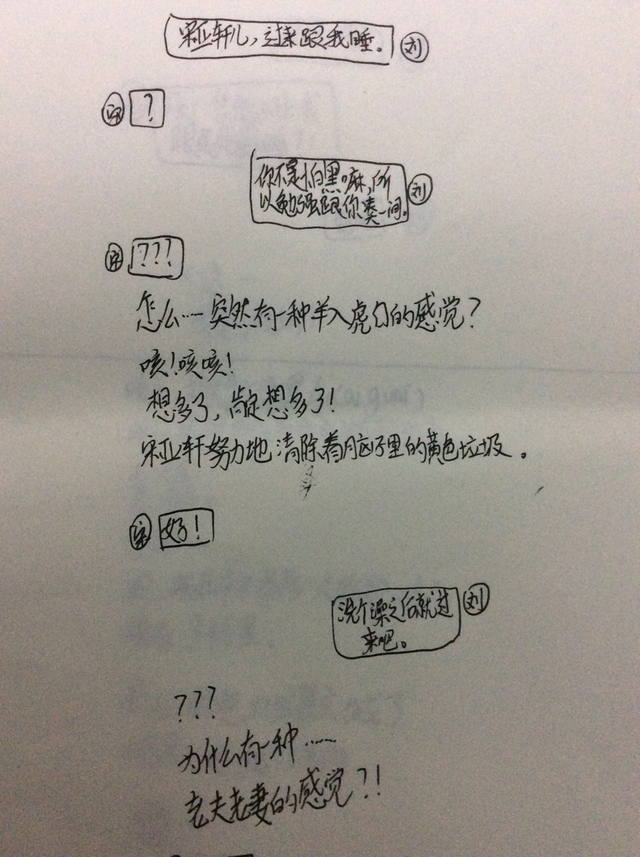 宋亚轩儿，过来跟我睡。 刘
宋 ？
你不是怕黑嘛，所 刘
以勉强跟你凑一间。
宋 ？？？
怎么……突然有一种羊入虎口的感觉？
咳！咳咳！
想多了，肯定想多了！
宋亚轩努力地清除着脑子里的黄色垃圾。
宋 好！
洗个澡之后就过 刘
来吧。
？？？
为什么有一种……
老夫老妻的感觉？！